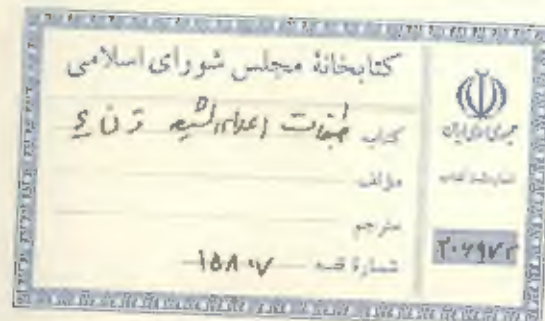 کتابخانهٔ مجلس شورای اسلامی
کتاب طبقات اعلام الشیعه قرن ۴
مؤلف
مترجم
شمارهٔ قفسه ۱۵۸۰۷
جمهوری اسلامی ایران
شماره ثبت کتاب
۲۰۶۹۷۲